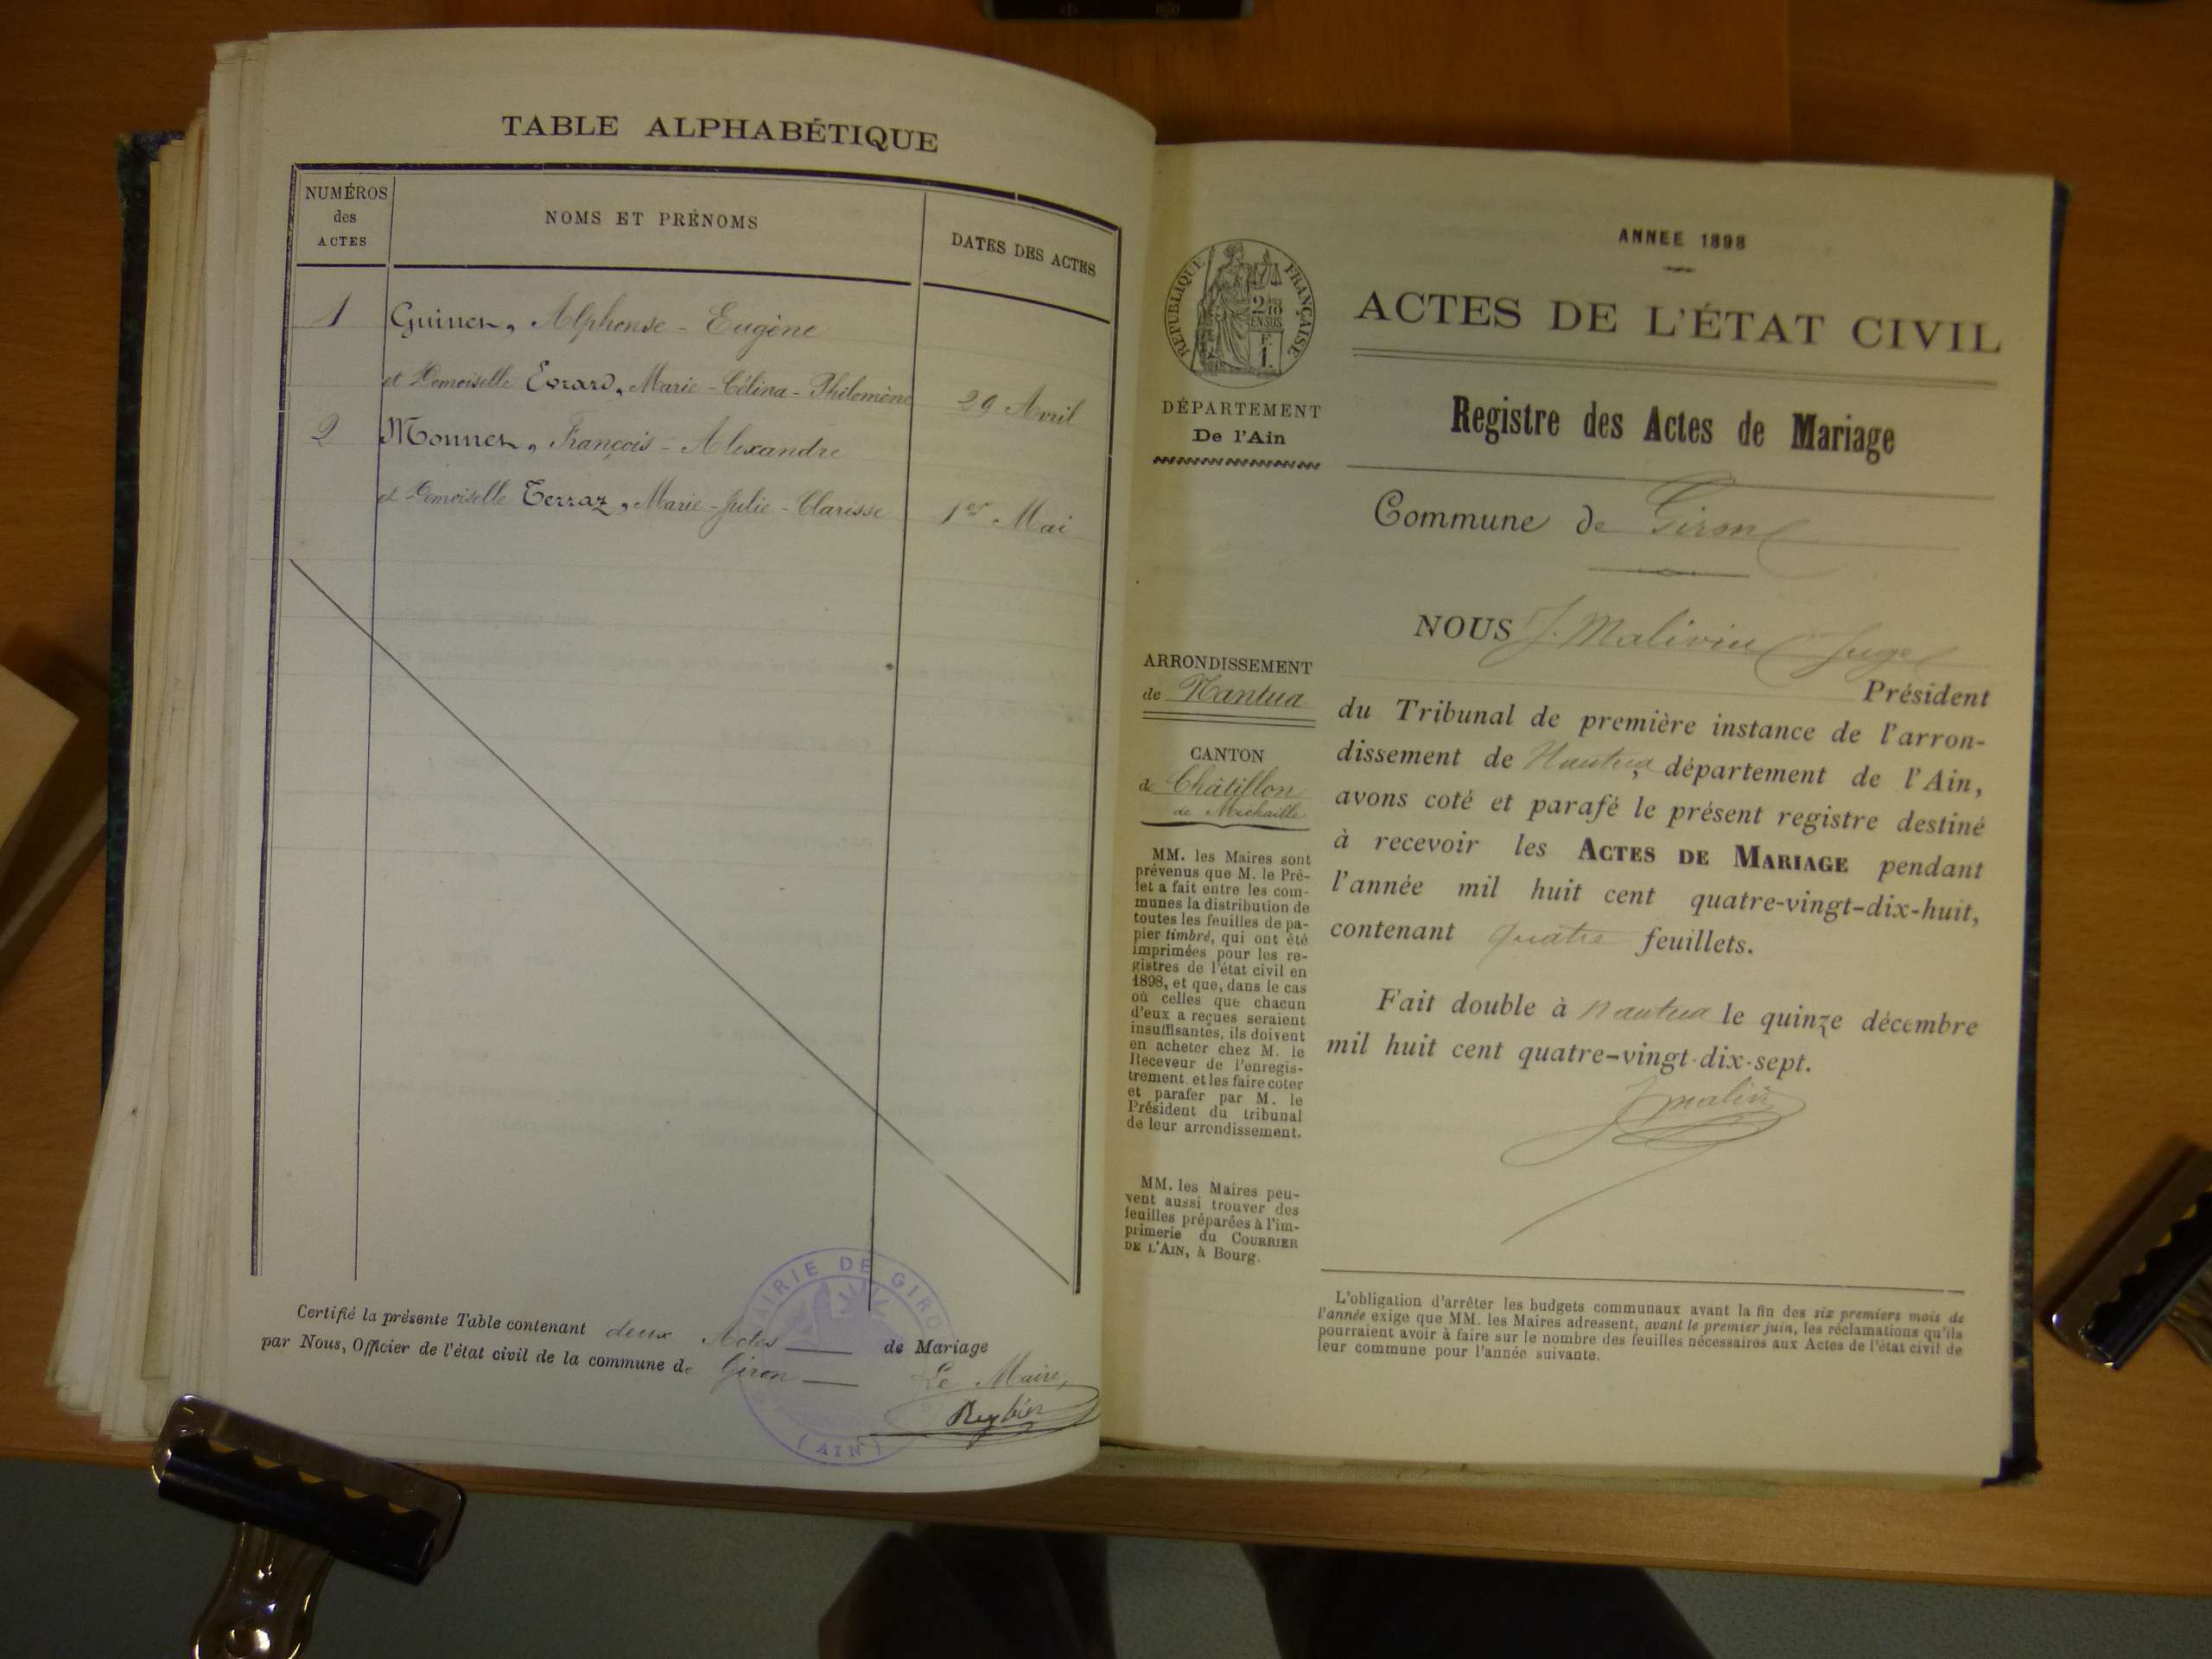 TABLE ALPHABÉTIQUE
NUMÉROS
des
ACTES
NOMS ET PRÉNOMS
DATES DES ACTES
1
Guinet, Alphonse - Eugène
et Demoiselle Evrard, Marie - Célina - Philomène
29 Avril
2
Monnet, François - Alexandre
et Demoiselle Terraz, Marie - Julie - Clarisse
1er Mai
Certifié la présente Table contenant deux Actes de Mariage
par Nous, Officier de l'état civil de la commune de Giron
Le Maire,
MAIRIE DE GIRON
(AIN)
ANNEE 1898
RÉPUBLIQUE FRANÇAISE
2/10
EN SUS
F.
1.
ACTES DE L'ÉTAT CIVIL
DÉPARTEMENT
De l'Ain
Registre des Actes de Mariage
Commune de Giron
NOUS J. Malivin Juge
Président
du Tribunal de première instance de l'arron-
dissement de Nantua, département de l'Ain,
avons coté et parafé le présent registre destiné
à recevoir les ACTES DE MARIAGE pendant
l'année mil huit cent quatre-vingt-dix-huit,
contenant quatre feuillets.
Fait double à Nantua le quinze décembre
mil huit cent quatre-vingt-dix-sept.
ARRONDISSEMENT
de Nantua
CANTON
de Châtillon
de Michaille
MM. les Maires sont
prévenus que M. le Pré-
fet a fait entre les com-
munes la distribution de
toutes les feuilles de pa-
pier timbré, qui ont été
imprimées pour les re-
gistres de l'état civil en
1898, et que, dans le cas
où celles que chacun
d'eux a reçues seraient
insuffisantes, ils doivent
en acheter chez M. le
Receveur de l'enregis-
trement et les faire coter
et parafer par M. le
Président du tribunal
de leur arrondissement.
MM. les Maires peu-
vent aussi trouver des
feuilles préparées à l'im-
primerie du COURRIER
DE L'AIN, à Bourg.
L'obligation d'arrêter les budgets communaux avant la fin des six premiers mois de
l'année exige que MM. les Maires adressent, avant le premier juin, les réclamations qu'ils
pourraient avoir à faire sur le nombre des feuilles nécessaires aux Actes de l'état civil de
leur commune pour l'année suivante.